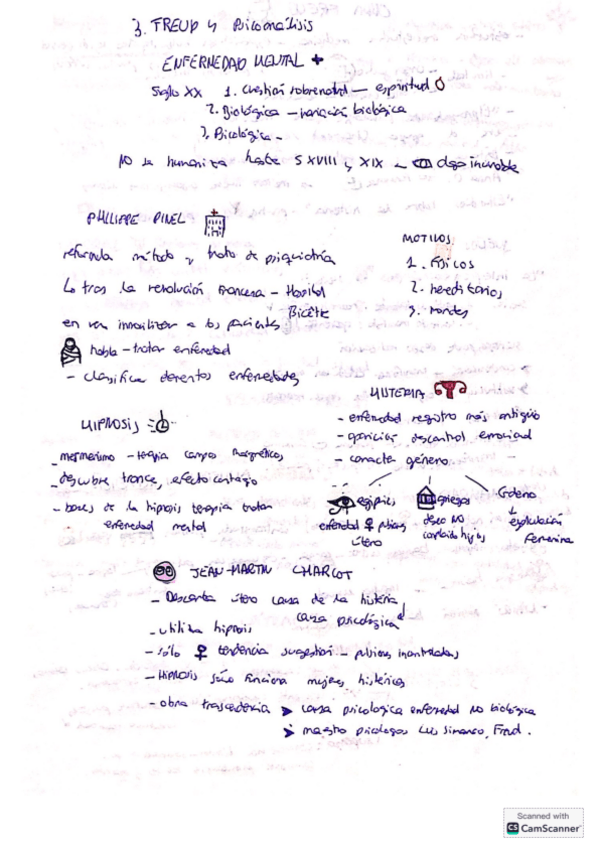 3. FREUD y Psicoanálisis
ENFERMEDAD MENTAL +
Siglo XX 1. Cuestión sobrenatural — espiritual
2. Biológica — variación biológica
3. Psicológica -
NO se humaniza hasta S XVIII y XIX - algo incurable
PHILIPPE PINEL
reformula método y trato de psiquiatría
↳ tras la revolución francesa - Hospital
Bicêtre
en vez inmovilizar a los pacientes
habla - tratar enfermedad
- clasifica diferentes enfermedades
MOTIVOS
1. Físicos
2. hereditarios
3. morales
HISTERIA
- enfermedad registro más antiguo
- aparición descontrol emocional
- conecta género
egipcios
enfermedad ♀ útero
griegos
deseo NO hijos
Galeno
explicación
femenina
HIPNOSIS
- mesmerismo - terapia campos magnéticos
- descubre trance, efecto contagio
- bases de la hipnosis terapia tratar
enfermedad mental
JEAN-MARTIN CHARCOT
- Descarta útero causa de la histeria
causa psicológica
- utiliza hipnosis
- sólo ♀ tendencia sugestión -
- Hipnosis sólo funciona mujeres histéricas
- obra trascendencia ➤ causa psicologica enfermedad NO biológica
➤ maestro psicologos Luis Simarro, Freud.
Scanned with
CS CamScanner